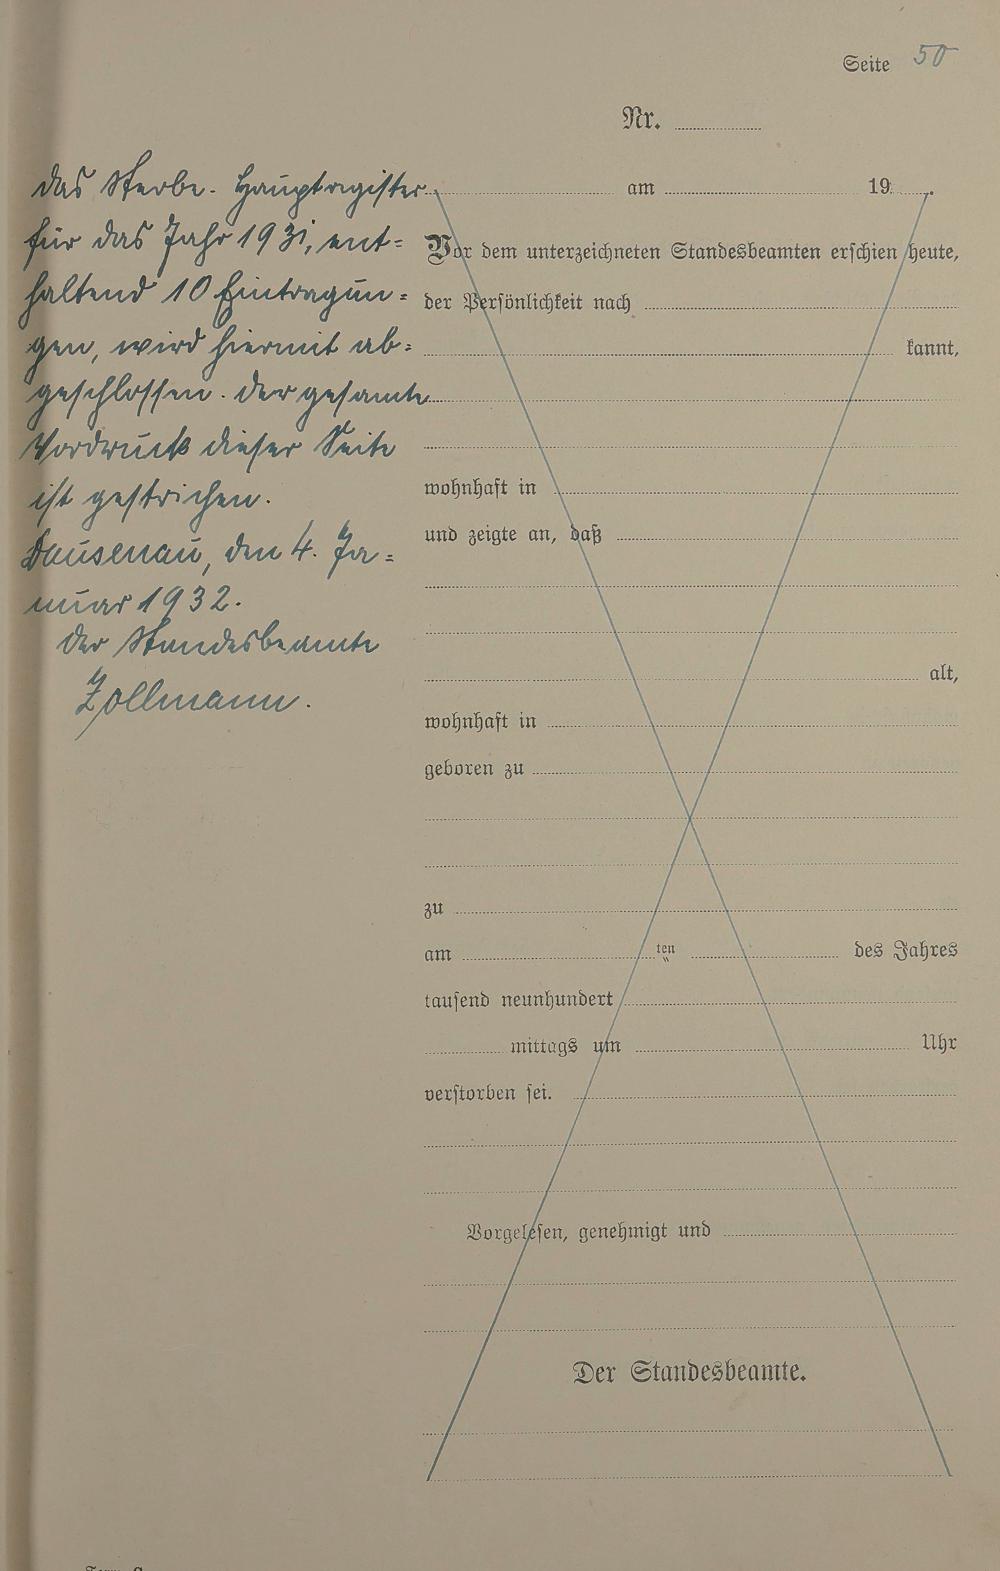 Seite 50
Nr.
am 19 .
Vor dem unterzeichneten Standesbeamten erschien heute,
der Persönlichkeit nach
kannt,
wohnhaft in
und zeigte an, daß
alt,
wohnhaft in
geboren zu
zu
am ten des Jahres
tausend neunhundert
mittags um Uhr
verstorben sei.
Vorgelesen, genehmigt und
Der Standesbeamte.
Das Sterbe-Hauptregister
für das Jahr 1931, ent=
haltend 10 Eintragun=
gen, wird hiermit ab=
geschlossen. Der gesamte
Vordruck dieser Seite
ist gestrichen.
Dausenau, den 4. Ja=
nuar 1932.
Der Standesbeamte
Zollmann.